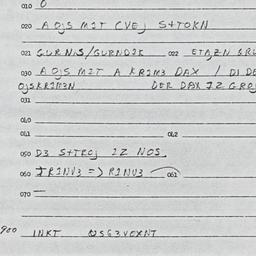 010 0
020 A OJS MIT CVEJ S+TOKN
021 GURNIS/GURNDIK 022 ETAZN GRU
030 A OJS MIT A KRIM3 DAX / DI DE
OJSKRIM3N DER DAX IZ GRO
031
040
041 042
050 D3 S+TROJ IZ NOS.
060 TRINV3 => RINV3 061
070 —
900 INKT